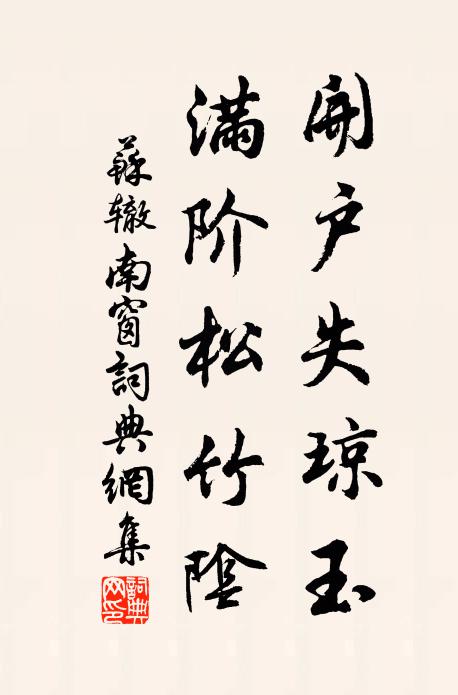 開户失琼玉
满阶松竹陰
蘇辙南窗詞典網集
詞典网印